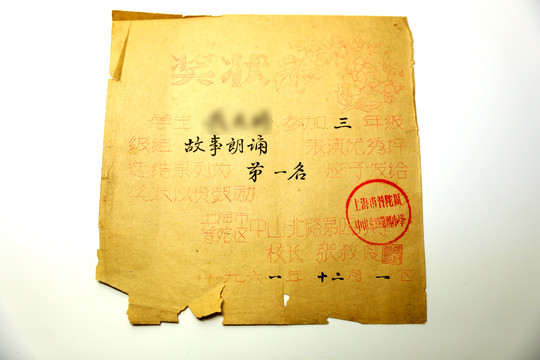 奖状
学生 参加三年级
级组故事朗诵 表演优秀评
选结果列为第一名应予发给
奖状以资鼓励
上海市
普陀区中山北路第四小学
校长 张叔良
一九六一年十二月一日
上海市普陀区
中山北路第四小学